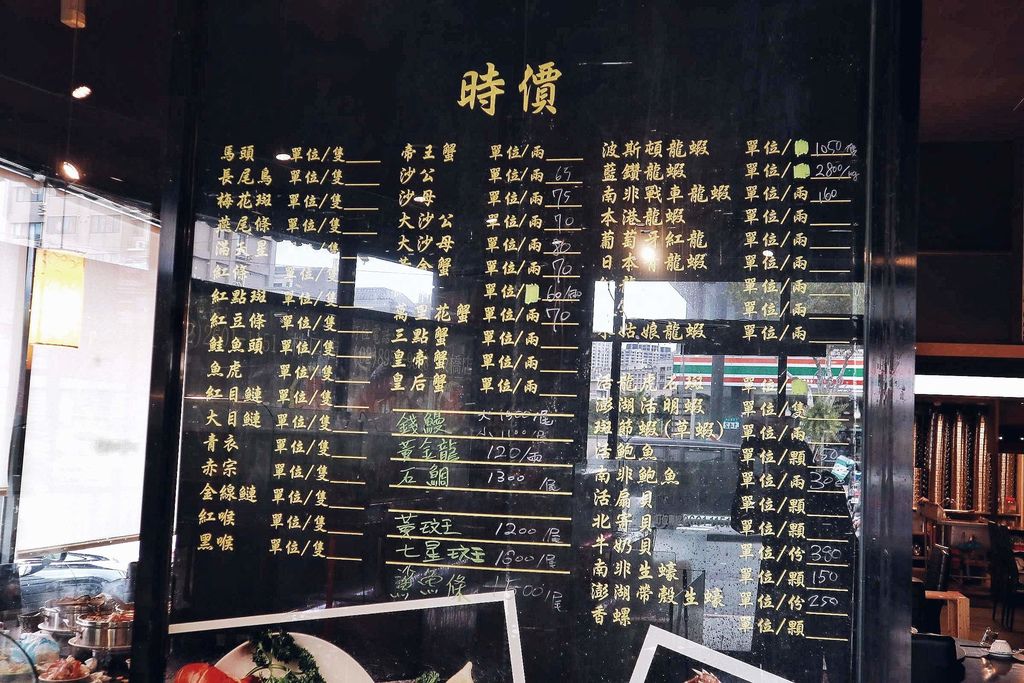 時價
馬頭 單位/隻
長尾鳥 單位/隻
梅花斑 單位/隻
燕尾條 單位/隻
滿天星 單位/隻
紅條 單位/隻
紅點斑 單位/隻
紅豆條 單位/隻
鮭魚頭 單位/隻
魚虎 單位/隻
紅目鰱 單位/隻
大目鰱 單位/隻
青衣 單位/隻
赤宗 單位/隻
金線鰱 單位/隻
紅喉 單位/隻
黑喉 單位/隻
帝王蟹 單位/兩
沙公 單位/兩 65
沙母 單位/兩 75
大沙公 單位/兩 70
大沙母 單位/兩 80
黃金蟹 單位/兩 70
單位/ 60/兩
萬里花蟹 單位/兩 70
三點蟹 單位/兩
皇帝蟹 單位/兩
皇后蟹 單位/兩
錢鰻 大 1600/尾
小 1100/尾
黃金龍 120/兩
石鯛 1300/尾
黃斑王 1200/尾
七星斑王 1600/尾
1500/尾
波斯頓龍蝦 單位/ 1050/隻
藍鑽龍蝦 單位/ 2800/kg
南非戰車龍蝦 單位/兩 160
本港龍蝦 單位/兩
葡萄牙紅龍 單位/兩
日本青龍蝦 單位/兩
單位/兩
單位/兩
小姑娘龍蝦 單位/兩
活龍虎石斑 單位/
澎湖活明蝦 單位/隻
斑節蝦(草蝦) 單位/兩
活鮑魚 單位/顆 150
南非鮑魚 單位/兩 300
活扇貝 單位/顆
北寄貝 單位/顆
牛奶貝 單位/份 380
南非生蠔 單位/顆 150
澎湖帶殼生蠔 單位/份 250
香螺 單位/顆